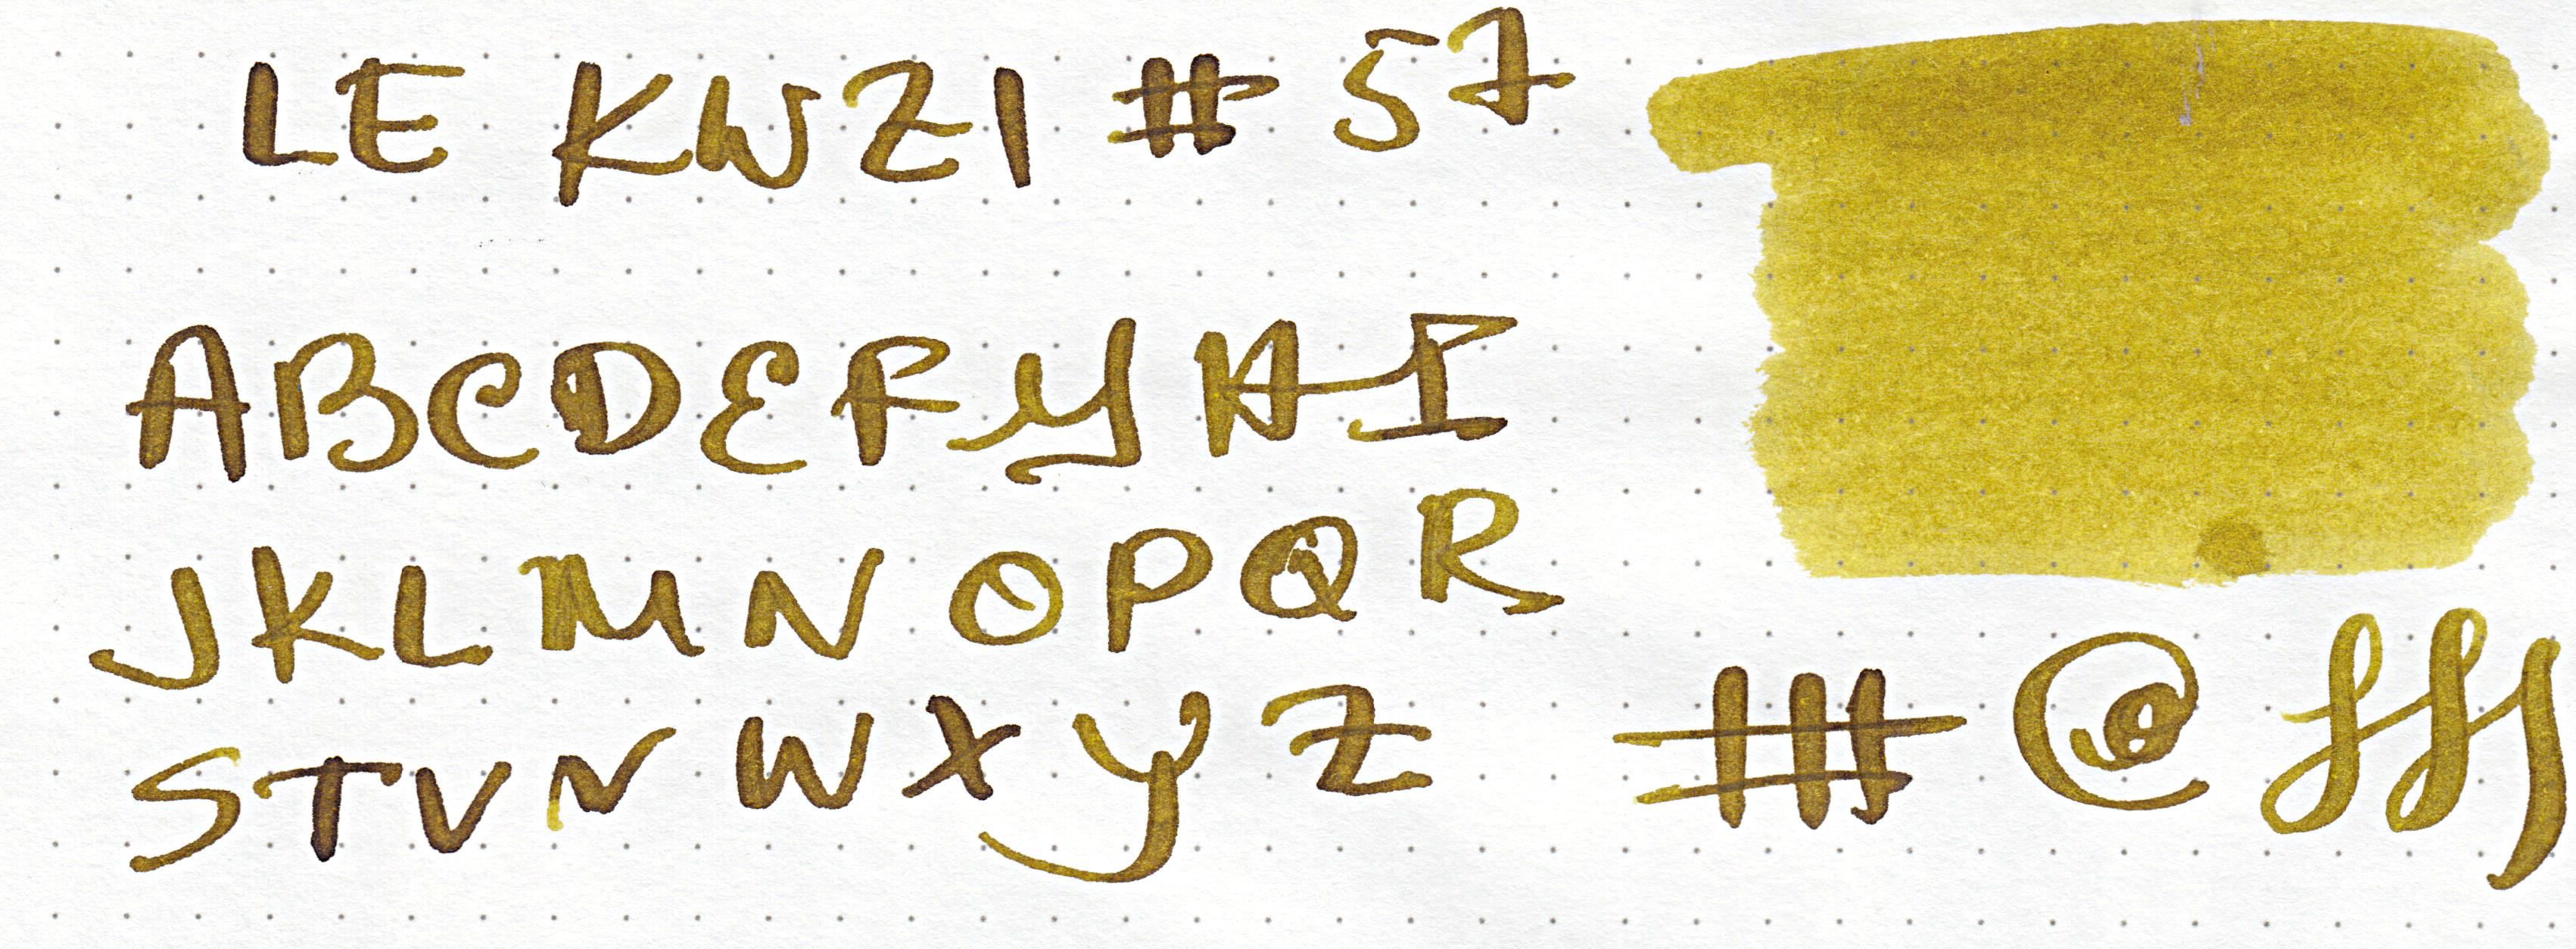 LE KWZI # 57
A B C D E F G H I
J K L M N O P Q R
S T U V W X Y Z
# @